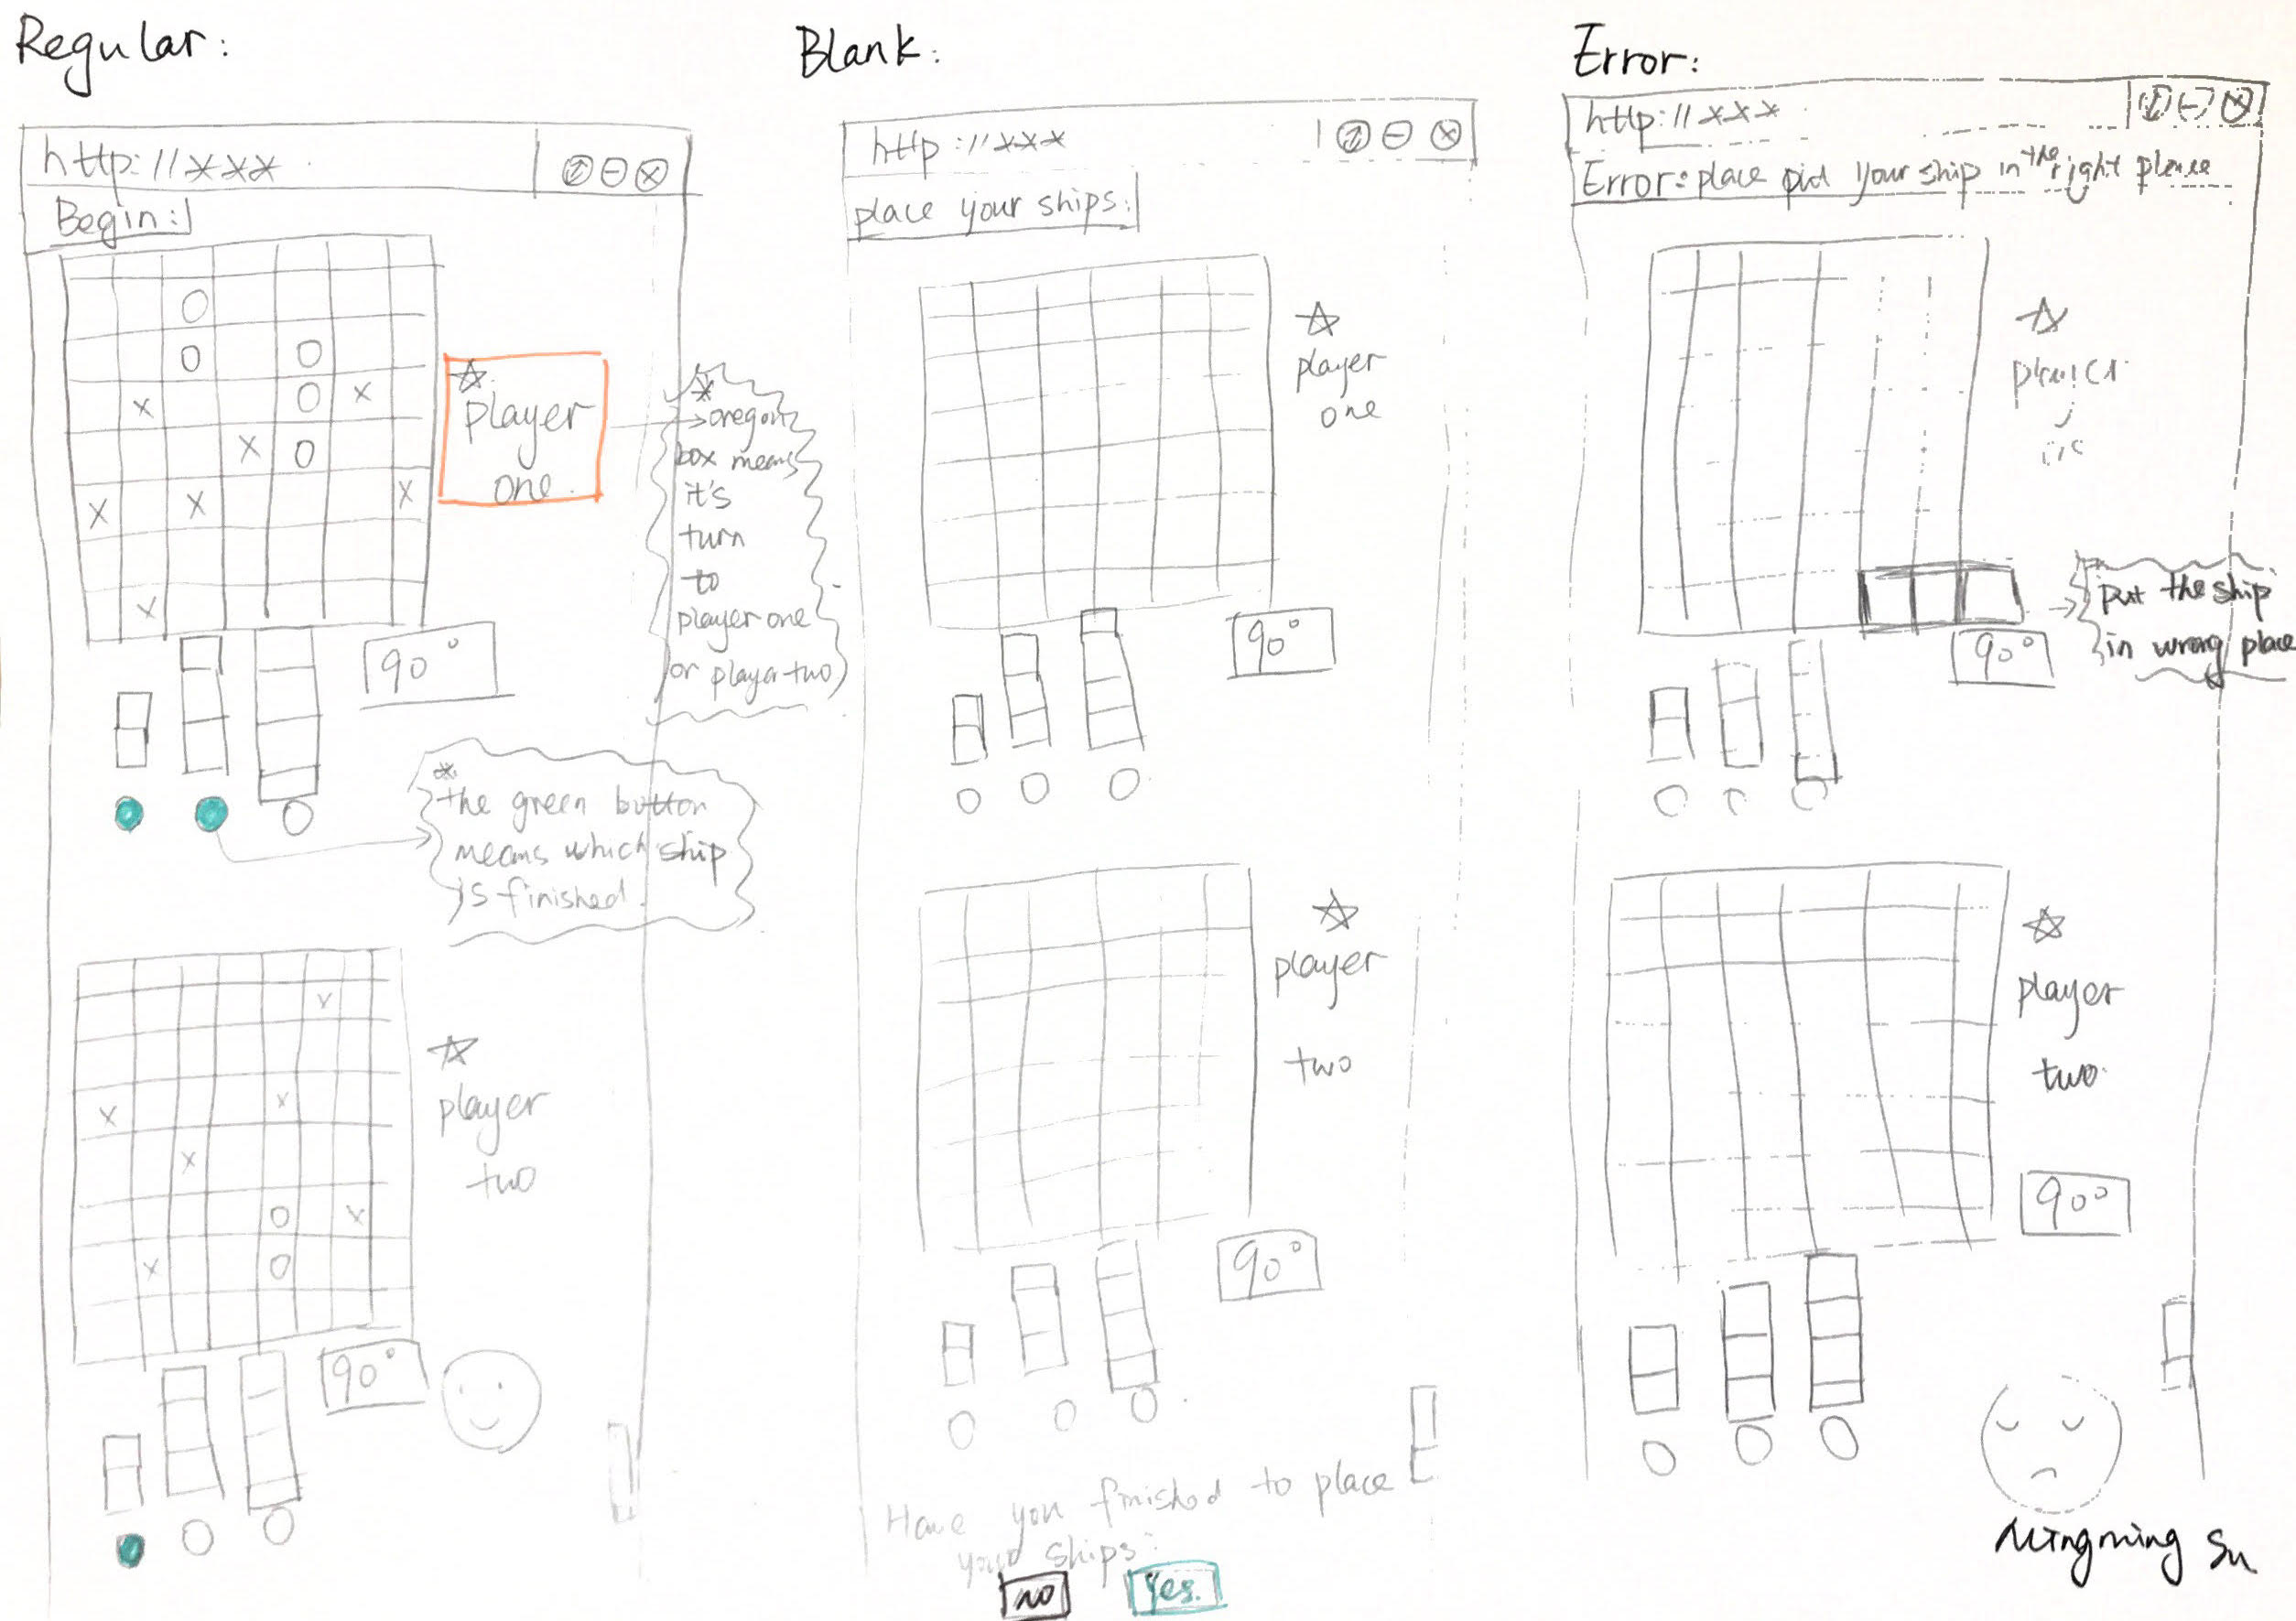 Regular:
http://xxx
Begin:
O
O O
X O X
X O
X X X
X
☆
player
one.
*
oregon
box means
it's
turn
to
player one
or player two
90°
*
the green button
means which ship
is finished.
X
X X
X
O X
X O
☆
player
two
90°
Blank:
http://xxx
place your ships:
☆
player
one
90°
☆
player
two
90°
Have you finished to place
your ships:
no yes.
Error:
http://xxx
Error: place put your ship in the right please
☆
90°
put the ship
in wrong place
☆
player
two
90°
Mingming Su